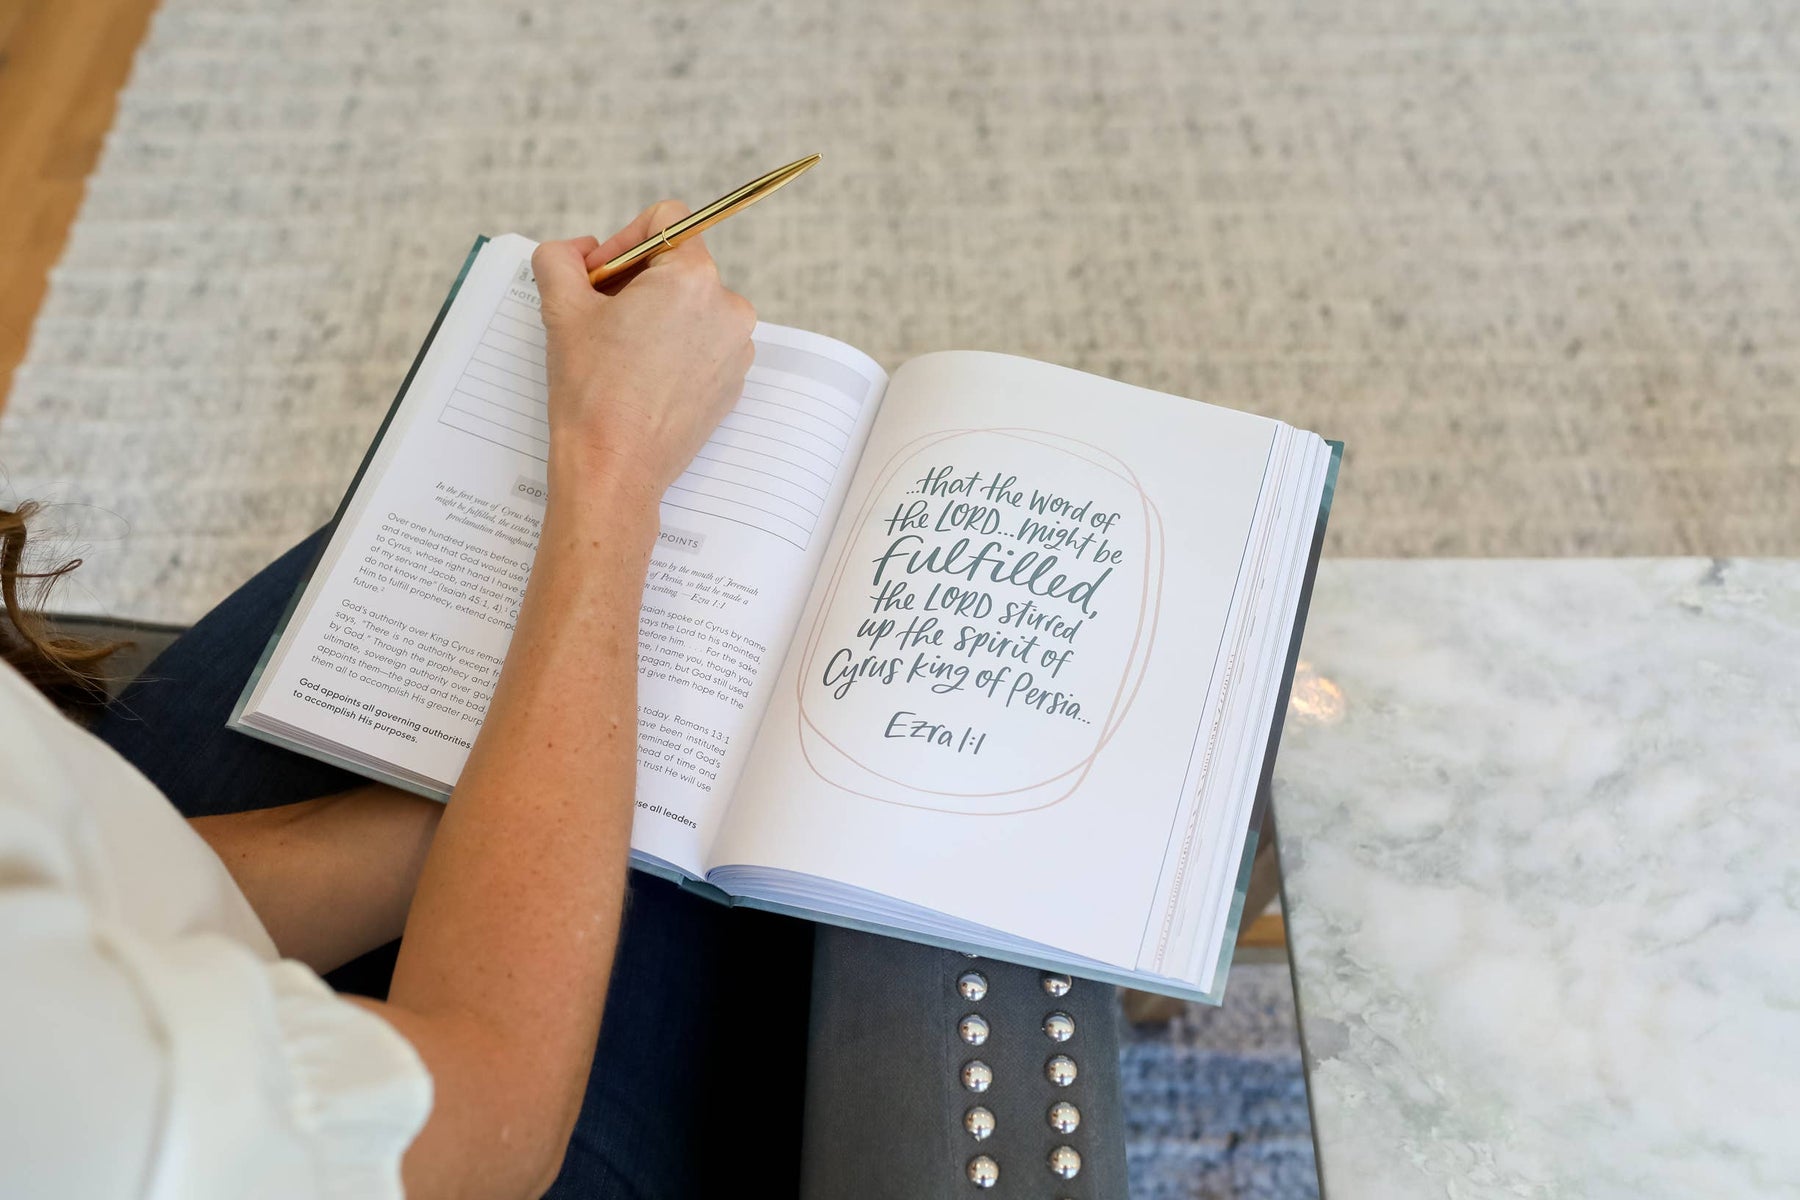 DAY
NOTES
GOD'S
POINTS
In the first year of Cyrus king
LORD by the mouth of Jeremiah
might be fulfilled, the LORD
of Persia, so that he made a
proclamation throughout
in writing —Ezra 1:1
Over one hundred years before
Isaiah spoke of Cyrus by name
and revealed that God would use
says the Lord to his anointed,
to Cyrus, whose right hand I have
before him . . . . For the sake
of my servant Jacob, and Israel my
me, I name you, though you
do not know me" (Isaiah 45:1, 4).¹
pagan, but God still used
Him to fulfill prophecy, extend
and give them hope for the
future.²
God's authority over King Cyrus
today. Romans 13:1
says, "There is no authority except
have been instituted
by God." Through the prophecy and
reminded of God's
ultimate, sovereign authority over
head of time and
appoints them—the good and the bad,
trust He will use
them all to accomplish His greater
God appoints all governing authorities.
use all leaders
to accomplish His purposes.
...that the word of
the LORD...might be
fulfilled,
the LORD stirred
up the spirit of
Cyrus king of Persia...
Ezra 1:1